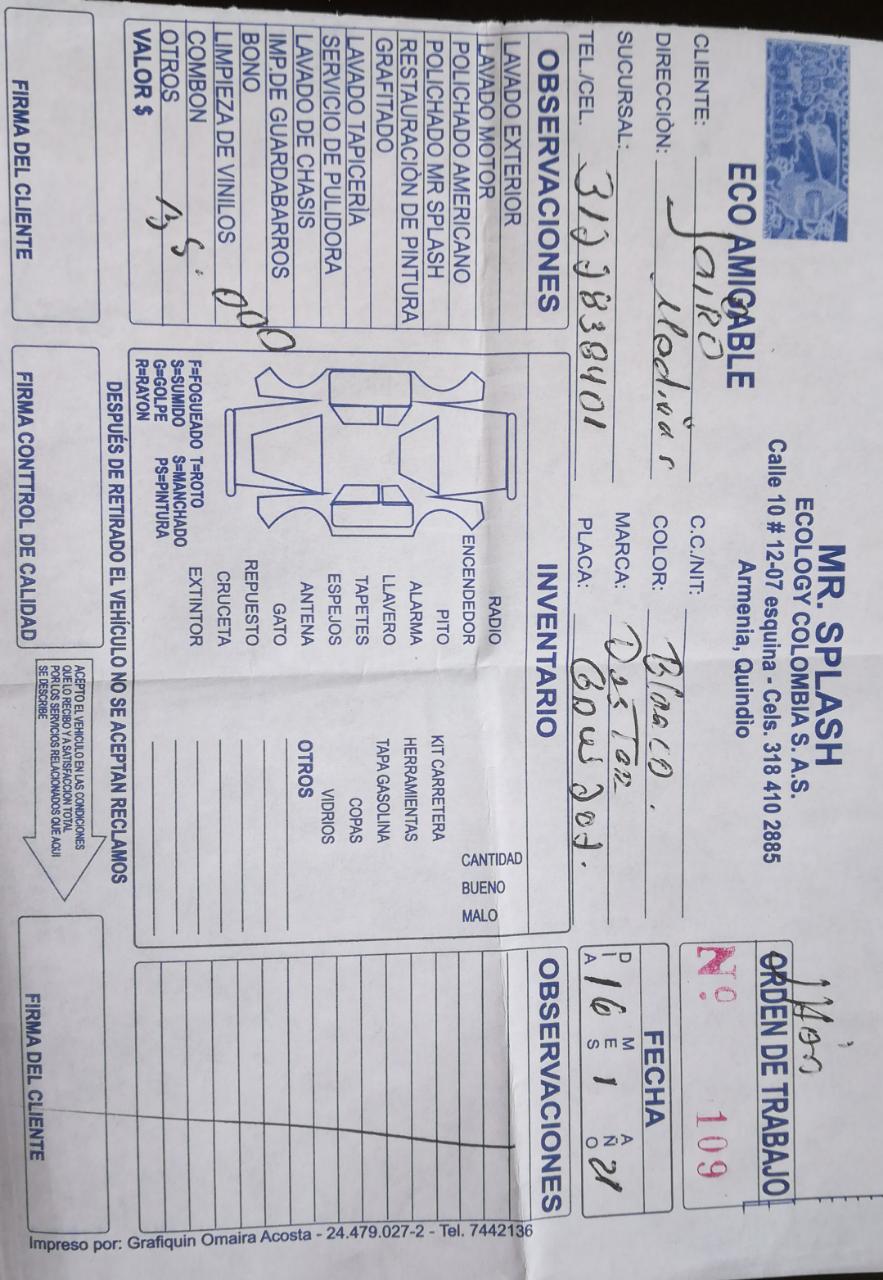 Mr Splash
MR. SPLASH
ECOLOGY COLOMBIA S. A. S.
Calle 10 # 12-07 esquina - Cels. 318 410 2885
Armenia, Quindio
ECO AMIGABLE
ORDEN DE TRABAJO
Nº. 109
CLIENTE: JAIRO
C.C./NIT:
DIRECCIÒN:
COLOR: Blanco.
SUCURSAL:
MARCA:
TEL./CEL. 3122838401
PLACA:
FECHA
DIA 16 MES 1 AÑO 21
OBSERVACIONES
LAVADO EXTERIOR
LAVADO MOTOR
POLICHADO AMERICANO
POLICHADO MR SPLASH
RESTAURACIÒN DE PINTURA
GRAFITADO
LAVADO TAPICERÌA
SERVICIO DE PULIDORA
LAVADO DE CHASIS
IMP.DE GUARDABARROS
BONO
LIMPIEZA DE VINILOS
COMBON
OTROS
VALOR $
INVENTARIO
RADIO
PITO
ENCENDEDOR
ALARMA
LLAVERO
TAPETES
ESPEJOS
ANTENA
GATO
REPUESTO
CRUCETA
EXTINTOR
CANTIDAD
BUENO
MALO
KIT CARRETERA
HERRAMIENTAS
TAPA GASOLINA
COPAS
VIDRIOS
OTROS
F=FOGUEADO T=ROTO
S=SUMIDO S=MANCHADO
G=GOLPE PS=PINTURA
R=RAYON
OBSERVACIONES
DESPUÉS DE RETIRADO EL VEHÍCULO NO SE ACEPTAN RECLAMOS
FIRMA DEL CLIENTE
FIRMA CONTTROL DE CALIDAD
ACEPTO EL VEHICULO EN LAS CONDICIONES
QUE LO RECIBO Y A SATISFACCION TOTAL
POR LOS SERVICIOS RELACIONADOS QUE AQUI
SE DESCRIBE
FIRMA DEL CLIENTE
Impreso por: Grafiquin Omaira Acosta - 24.479.027-2 - Tel. 7442136